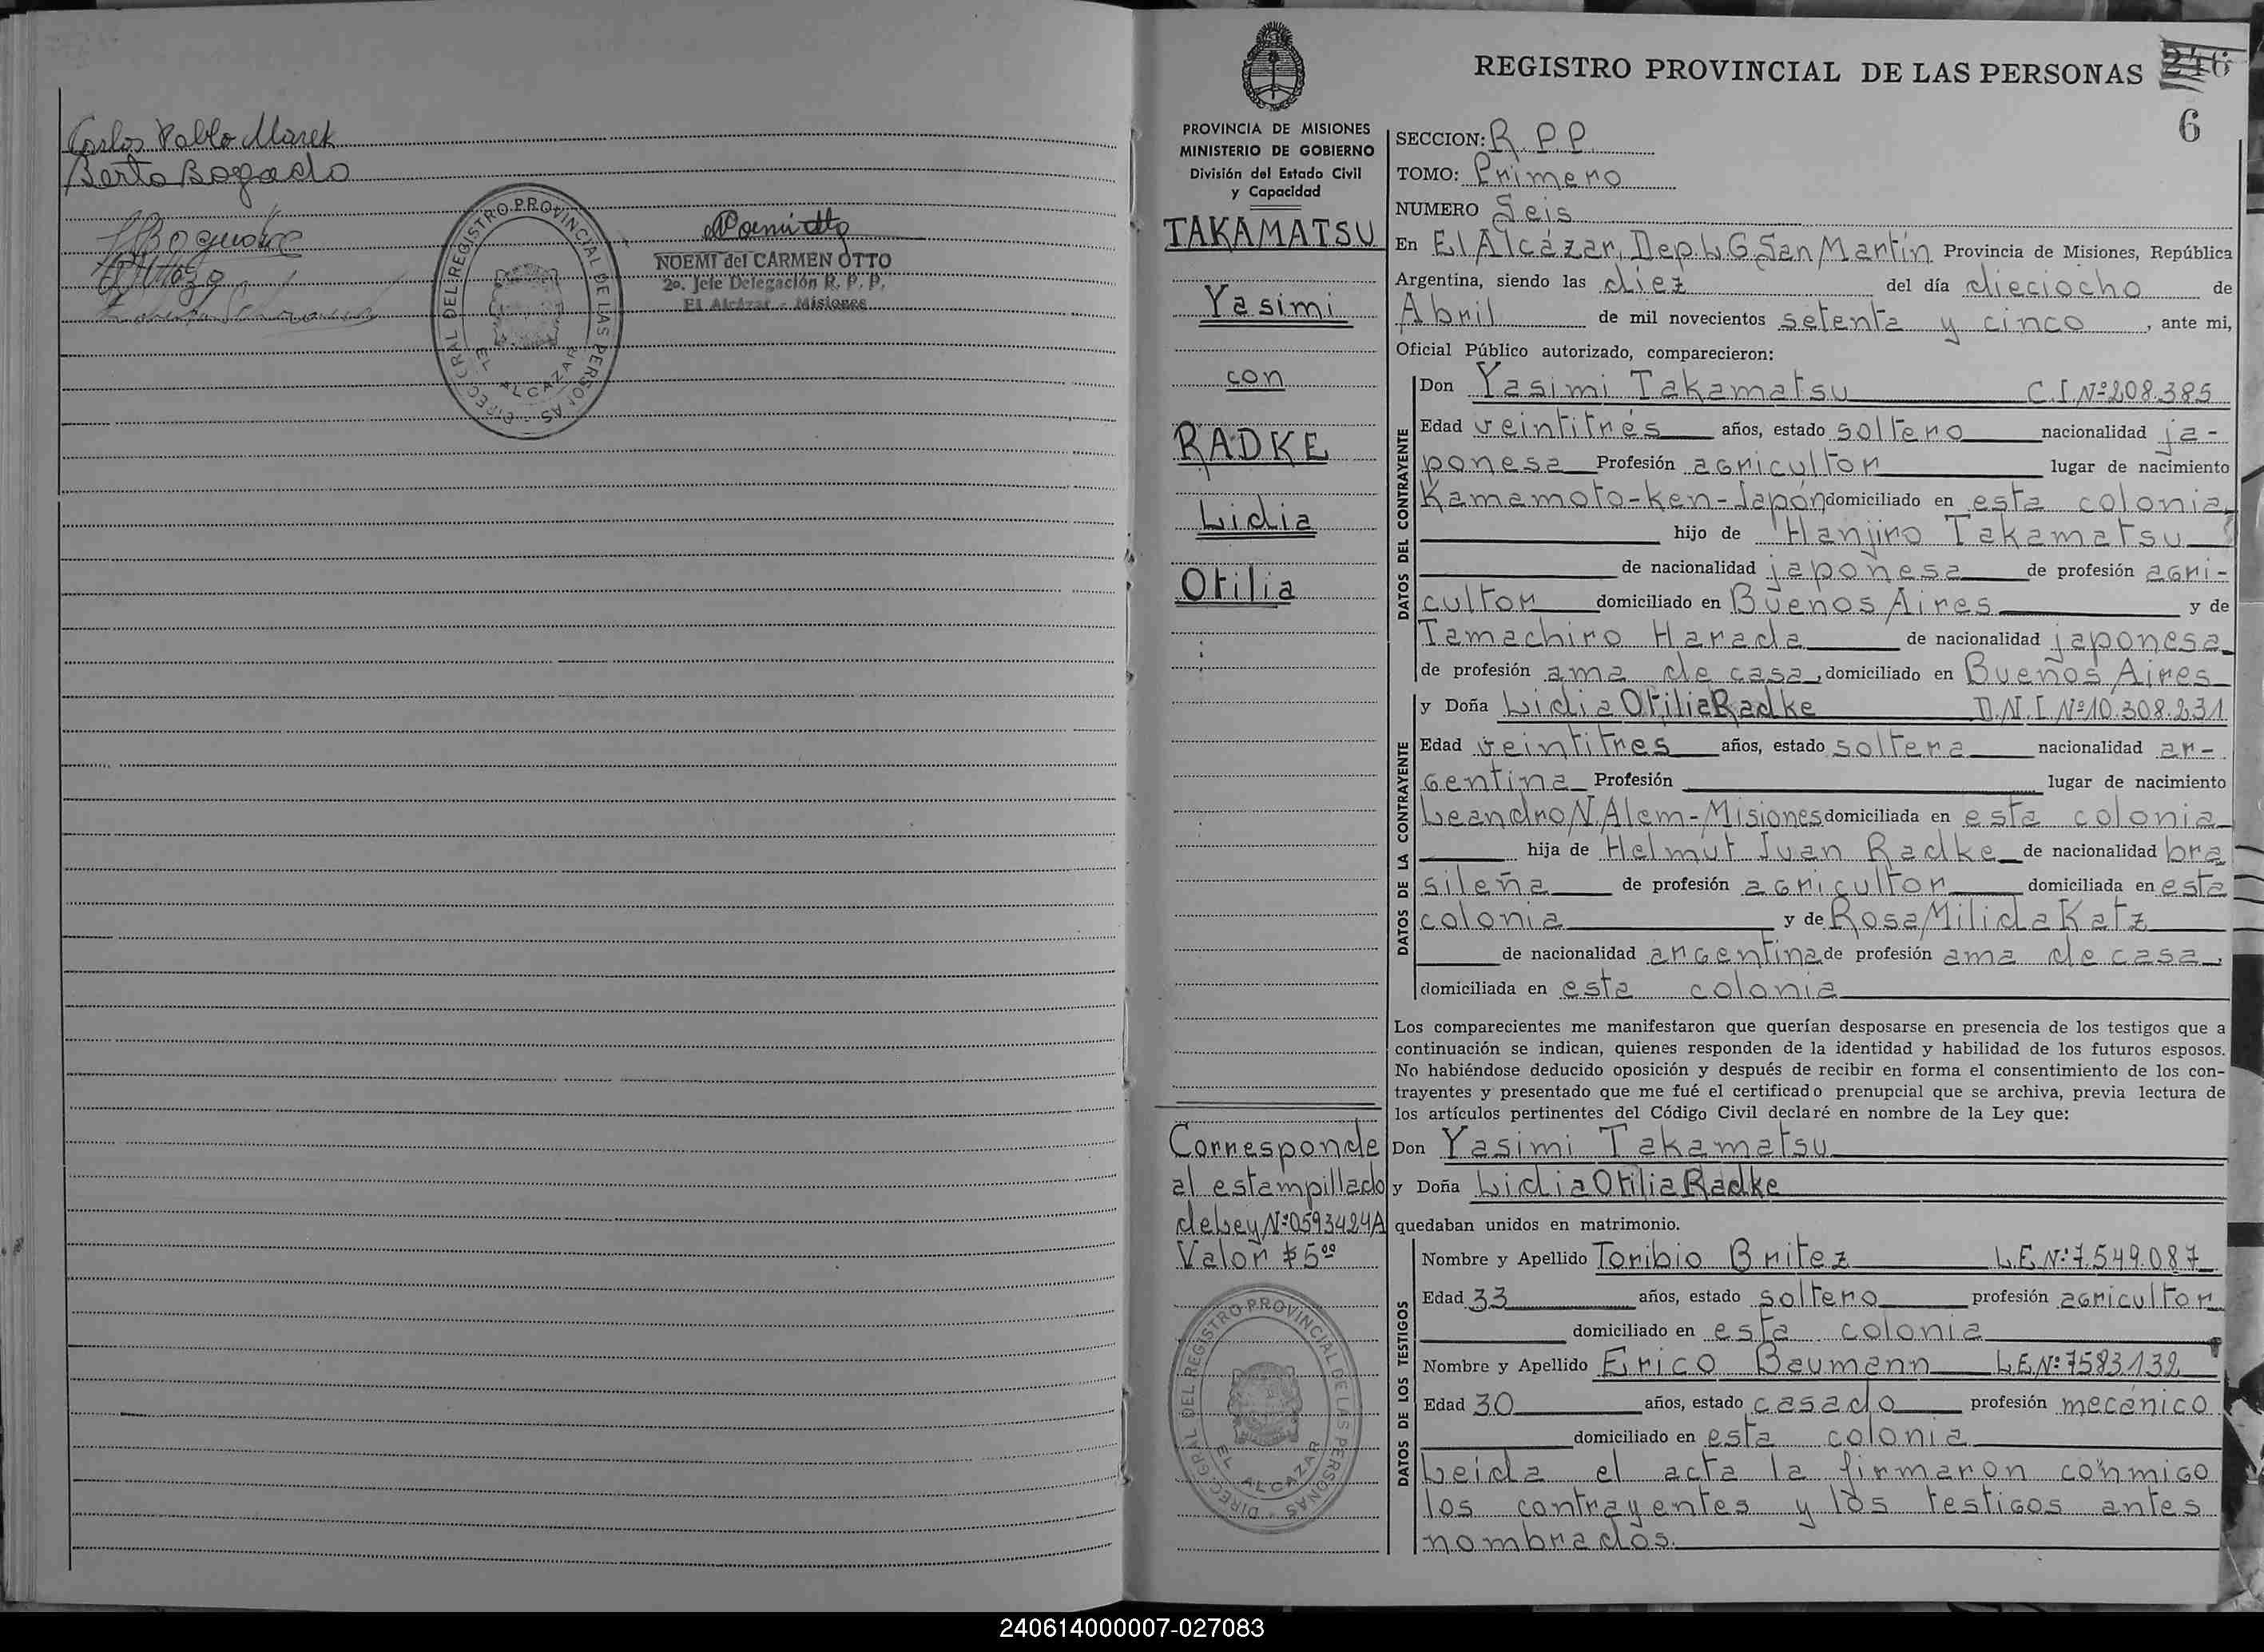 Carlos Pablo Marek
Berta Bogado
DIREC. GRAL DEL REGISTRO PROVINCIAL DE LAS PERSONAS
EL ALCAZAR
NOEMI del CARMEN OTTO
2º. Jefe Delegación R. P. P.
El Alcázar - Misiones
REGISTRO PROVINCIAL DE LAS PERSONAS
246
6
PROVINCIA DE MISIONES
MINISTERIO DE GOBIERNO
División del Estado Civil
y Capacidad
TAKAMATSU
Yasimi
con
RADKE
Lidia
Otilia
Corresponde
al estampillado
de Ley Nº 0593424A
Valor $ 5⁰⁰
DIREC. GRAL DEL REGISTRO PROVINCIAL DE LAS PERSONAS
EL ALCAZAR
SECCION: R.P.P.
TOMO: Primero
NUMERO Seis
En El Alcázar, Dep. L G San Martín Provincia de Misiones, República
Argentina, siendo las diez del día dieciocho de
Abril de mil novecientos setenta y cinco, ante mi,
Oficial Público autorizado, comparecieron:
DATOS DEL CONTRAYENTE
Don Yasimi Takamatsu C.I. Nº 208.385
Edad veintitrés años, estado soltero nacionalidad ja-
ponesa Profesión agricultor lugar de nacimiento
Kamamoto-Ken-Japón domiciliado en esta colonia,
hijo de Hanjiro Takamatsu
de nacionalidad japonesa de profesión agri-
cultor domiciliado en Buenos Aires y de
Tamachiro Harada de nacionalidad japonesa
de profesión ama de casa, domiciliado en Buenos Aires
DATOS DE LA CONTRAYENTE
y Doña Lidia Otilia Radke D.N.I. Nº 10.308.231
Edad veintitres años, estado soltera nacionalidad ar-
gentina Profesión lugar de nacimiento
Leandro N. Alem-Misiones domiciliada en esta colonia
hija de Helmut Juan Radke de nacionalidad bra
sileña de profesión agricultor domiciliada en esta
colonia y de Rosa Milida Katz
de nacionalidad argentina de profesión ama de casa,
domiciliada en esta colonia
Los comparecientes me manifestaron que querían desposarse en presencia de los testigos que a
continuación se indican, quienes responden de la identidad y habilidad de los futuros esposos.
No habiéndose deducido oposición y después de recibir en forma el consentimiento de los con-
trayentes y presentado que me fué el certificado prenupcial que se archiva, previa lectura de
los artículos pertinentes del Código Civil declaré en nombre de la Ley que:
Don Yasimi Takamatsu
y Doña Lidia Otilia Radke
quedaban unidos en matrimonio.
DATOS DE LOS TESTIGOS
Nombre y Apellido Toribio Britez L.E. Nº: 7.549.087
Edad 33 años, estado soltero profesión agricultor
domiciliado en esta colonia
Nombre y Apellido Erico Baumann L.E. Nº: 7583132
Edad 30 años, estado casado profesión mecánico
domiciliado en esta colonia
Leida el acta la firmaron conmigo
los contrayentes y los testigos antes
nombrados.
240614000007-027083